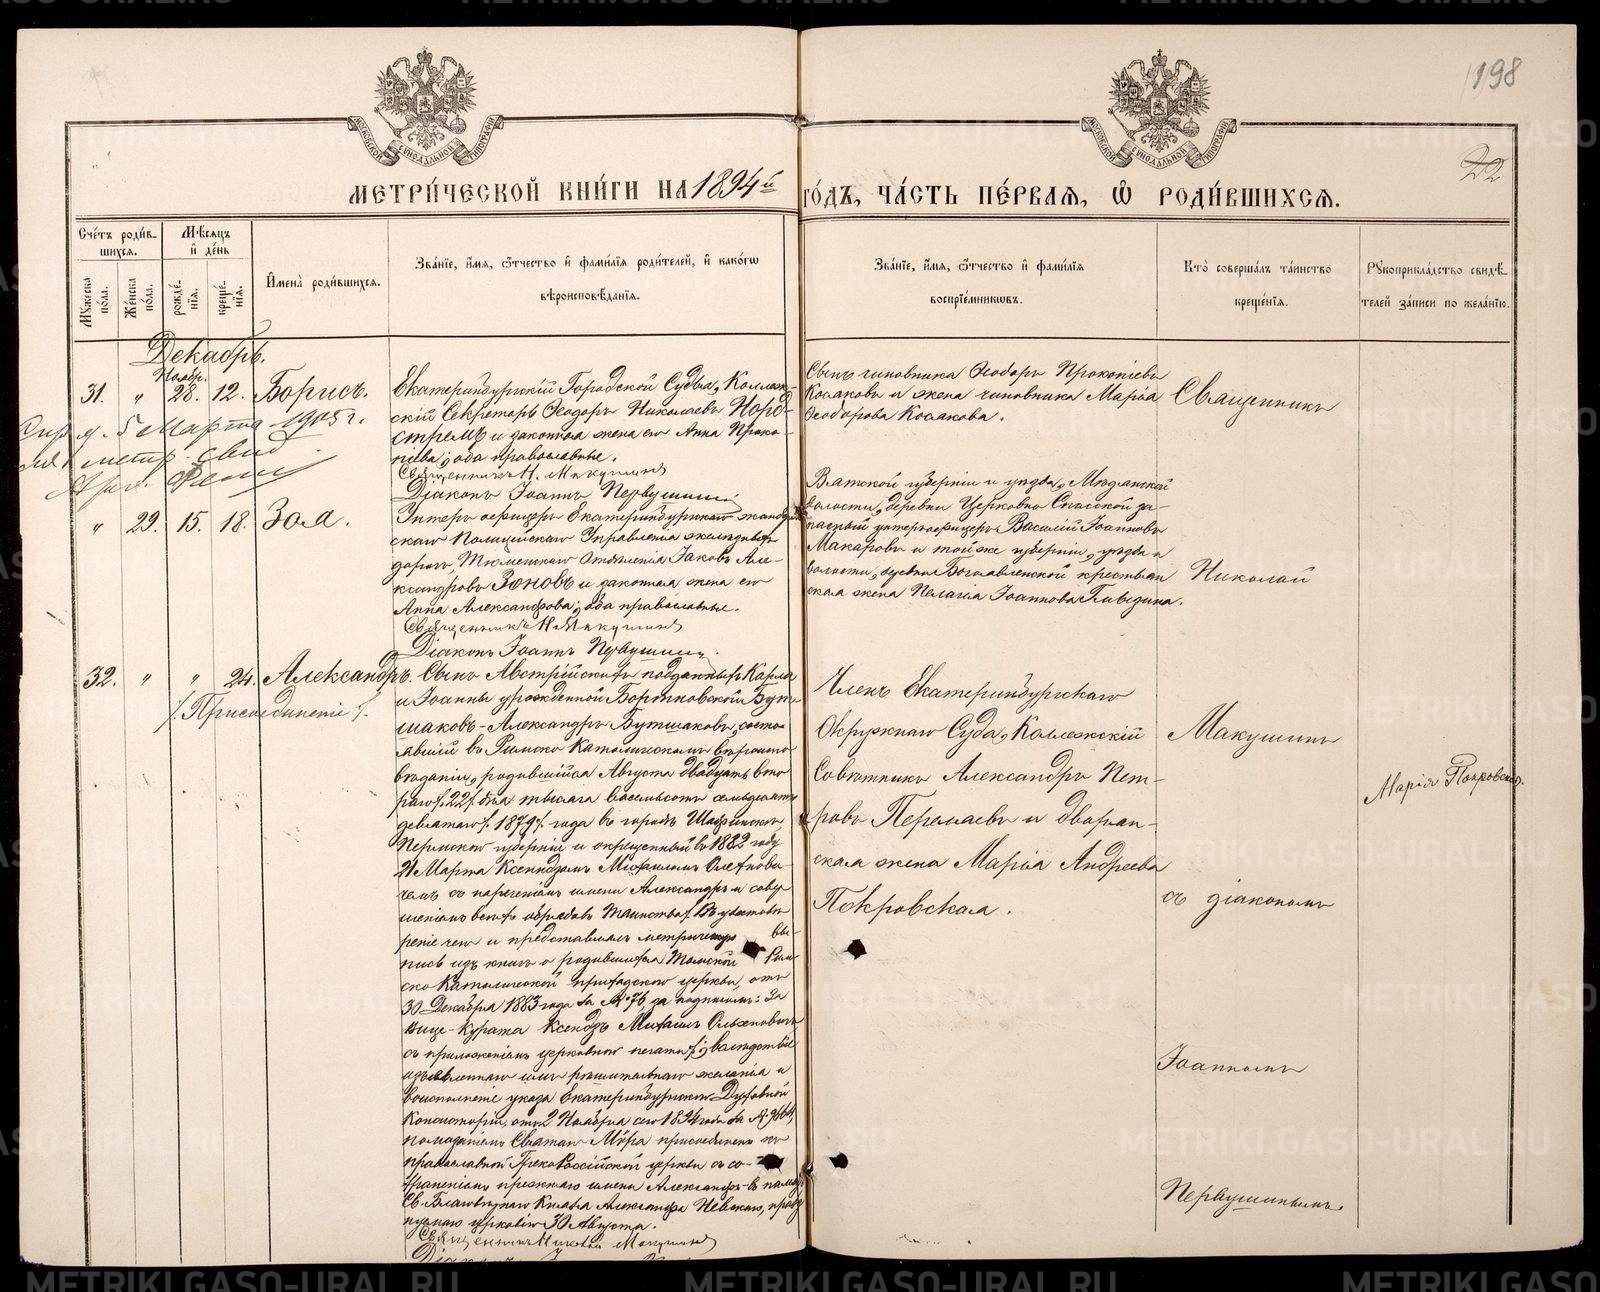 198
22
МЕТРИ́ЧЕСКОЙ КНИ́ГИ НА 1894й ГО́ДЪ, ЧА́СТЬ ПЕ́РВАѦ, Ѡ РОДИ́ВШИХСѦ.
Сче́тъ роди́в-
шихсѧ.
Мꙋжеска по́ла.
Же́нска по́ла.
Мѣ́сяцъ и҆ де́нь
рожде́нїѧ.
креще́нїѧ.
И҆мена̀ роди́вшихсѧ.
Зва́нїе, и҆́мѧ, ѻ҆́тчество и҆ фами́лїѧ роди́телей, и҆ како́гѡ
вѣроисповѣ́данїѧ.
Зва́нїе, и҆́мѧ, ѻ҆́тчество и҆ фами́лїѧ
воспрїе́мникѡвъ.
Кто̀ соверша́лъ та́инство
креще́нїѧ.
Рꙋкоприкла́дство свидѣ́-
телей за́писи по жела́нїю.
Декабрь.
Ноябр.
31. " 28. 12. Борисъ.
Екатеринбургскій Городской Судья, Коллеж-
скій Секретарь Ѳеодоръ Николаевъ Норд-
стремъ и законная жена его Анна Проко-
піева; оба православные.
Священникъ Н. Макушинъ
Діаконъ Іоаннъ Первушинъ
Сынъ чиновника Ѳеодоръ Прокопіевъ
Косаковъ и жена чиновника Марія
Ѳеодорова Косакова.
Священникъ
5 Марта 1905 г.
метр. свид.
" 29. 15. 18. Зоя.
Унтеръ офицеръ Екатеринбургскаго жандарм-
скаго Полицейскаго Управленія желѣзныхъ
дорогъ Тюменскаго Отдѣленія Іаковъ Але-
ксандровъ Зоновъ и законная жена его
Анна Александрова; оба православные.
Священникъ Н. Макушинъ
Діаконъ Іоаннъ Первушинъ.
Вятской губерніи и уѣзда,
волости, деревни Церковно Спасской за-
пасный унтеръ офицеръ Василій Іоанновъ
Макаровъ и той же губерніи, уѣзда и
волости, деревни Богоявленской крестьян
ская жена Пелагія Іоаннова
Николай
32. " " 24. Александръ.
/. Присоединеніе /.
Сынъ Австрійскихъ подданныхъ Карла
и Іоанны урожденной Бортновской Бут-
шаковъ - Александръ Бутшаковъ, состо-
явшій въ Римско Католическомъ вѣроиспо-
вѣданіи, родившійся Августа двадцать вто-
раго /. 22 /. дня тысяча восемьсотъ семьдесятъ
девятаго /. 1879 /. года въ городѣ Шадринскѣ
Пермской губерніи и окрещенный въ 1882 году
21 Марта Ксендзомъ Михаиломъ
чемъ съ нареченіемъ имени Александръ и совер-
шеніемъ всѣхъ обрядовъ Таинства /. Въ удостовѣ
реніе чего и представилъ метрическую вы-
пись изъ книгъ о родившихся Томской Рим
ско Католической приходской церкви, отъ
30 Декабря 1883 года за № 76, за подписомъ: За
Вице-Курата Ксендзъ Михаилъ
съ приложеніемъ церковной печати /. вслѣдствіе
изъявленнаго имъ рѣшительнаго желанія и
во исполненіе указа Екатеринбургской Духовной
Консисторіи, отъ 2 Ноября сего 1894 года за №
помазаніемъ Святаго Мѵра присоединенъ къ
православной Греко Россійской церкви съ со-
храненіемъ прежняго имени Александръ - въ память
Св. Благовѣрнаго Князя Александра Невскаго, празд
нуемаго церковію 30 Августа.
Священникъ Николай Макушинъ
Членъ Екатеринбургскаго
Окружнаго Суда, Коллежскій
Совѣтникъ Александръ Пет-
ровъ Пермяевъ и дворян-
ская жена Марія Андреева
Покровская.
Макушинъ
съ діакономъ
Іоанномъ
Первушинымъ.
Марія Покровская.